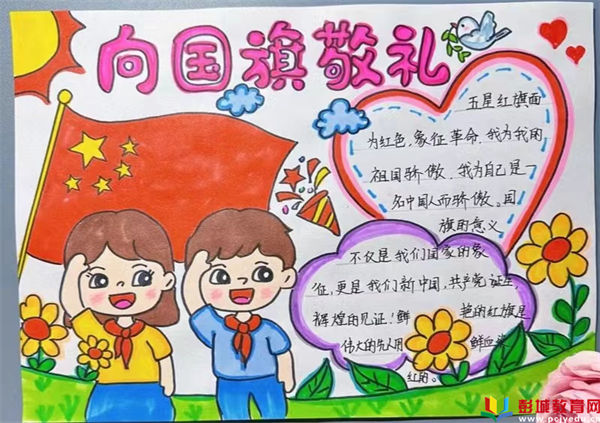 向国旗敬礼
五星红旗面
为红色,象征革命.我为我的
祖国骄傲.我为自己是一
名中国人而骄傲。国
旗的意义
不仅是我们国家的象
征,更是我们新中国,共产党诞生
辉煌的见证!鲜 艳的红旗是
伟大的先人用 鲜血染
红的。
彭城教育网
www.pcjyedu.cn